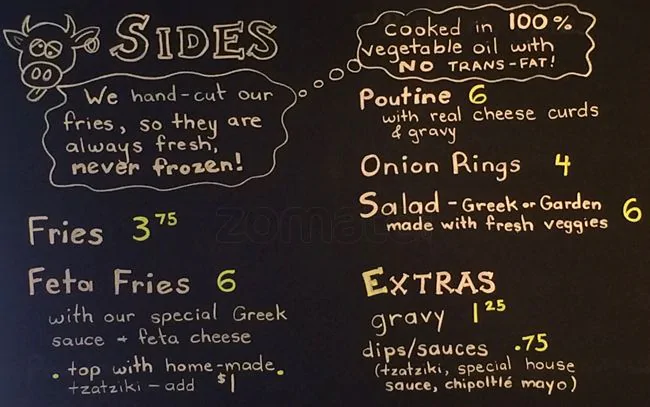 SIDES
We hand-cut our
fries, so they are
always fresh,
never frozen!
Cooked in 100%
vegetable oil with
NO TRANS-FAT!
Fries 3 75
Feta Fries 6
with our special Greek
sauce + feta cheese
• top with home-made •
tzatziki – add $1
Poutine 6
with real cheese curds
& gravy
Onion Rings 4
Salad - Greek or Garden 6
made with fresh veggies
EXTRAS
gravy 1 25
dips/sauces .75
(tzatziki, special house
sauce, chipoltlé mayo)
zomato